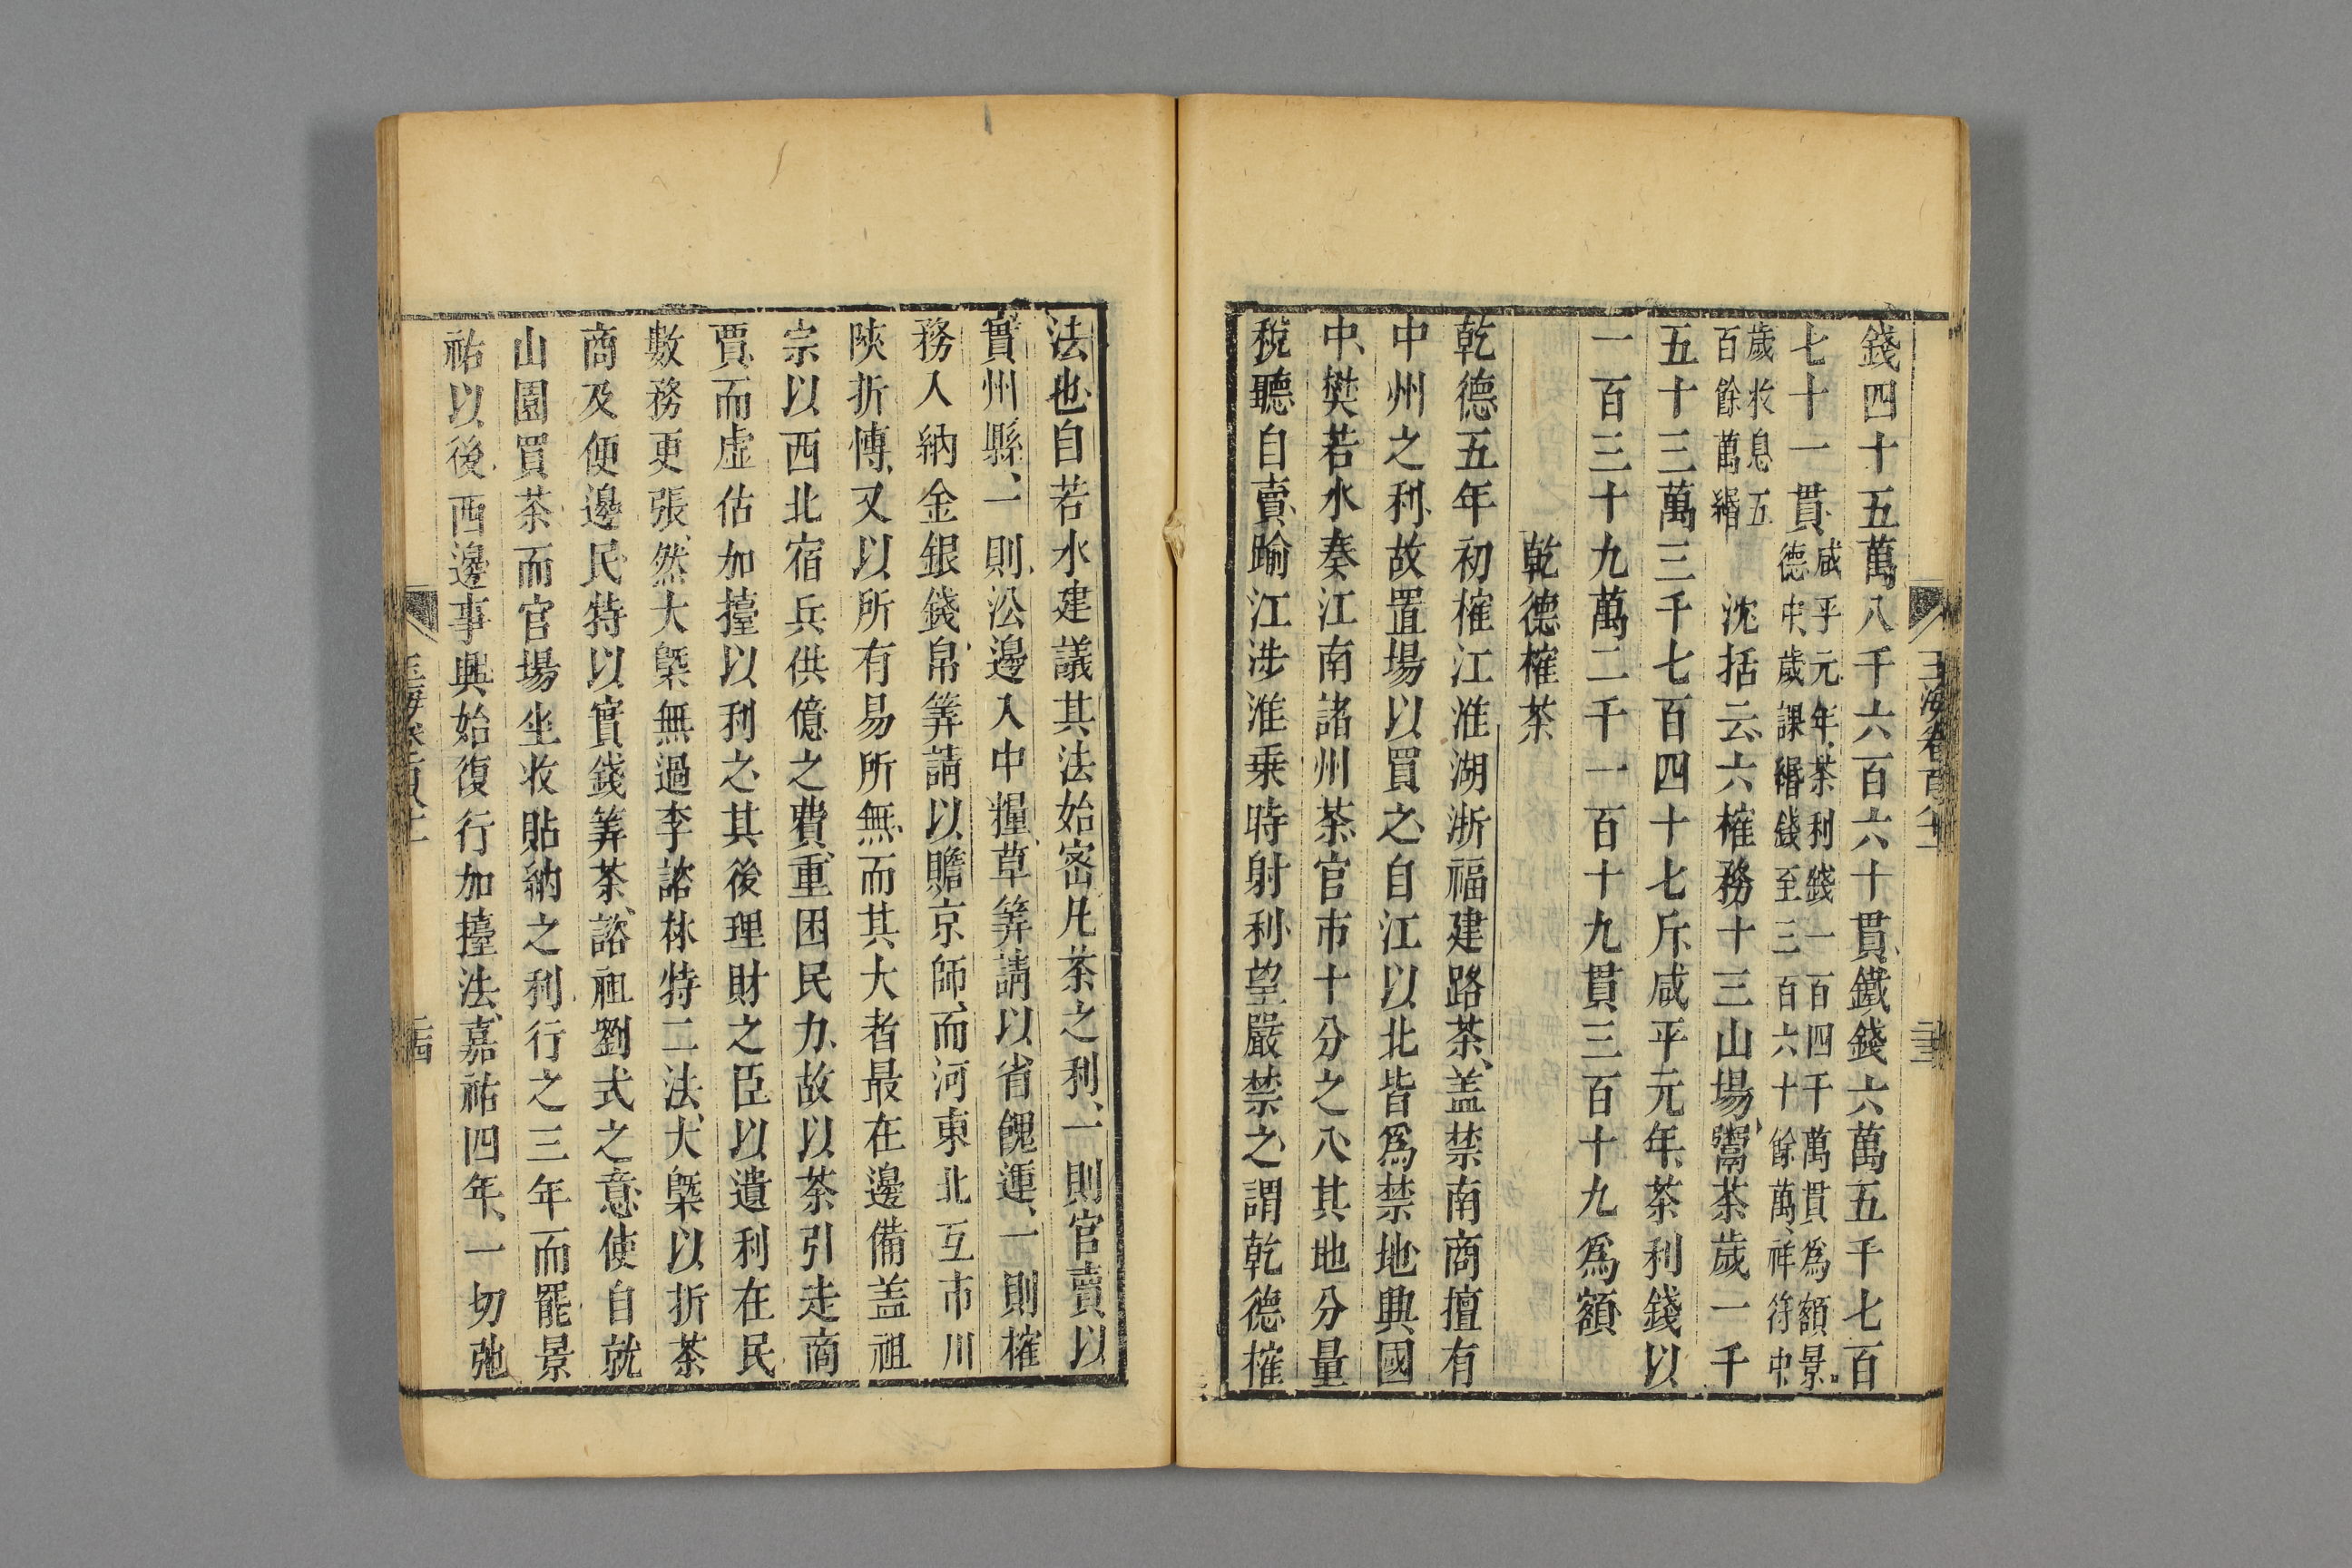 玉海卷百八十一
錢四十五萬八千六百六十貫鐵錢六萬五千七百
七十一貫咸平元年茶利錢一百四千萬貫爲額景
德中歲課緡錢至三百六十餘萬祥符中
歲收息五
百餘萬緡　沈括云六榷務十三山場鬻茶歲一千
五十三萬三千七百四十七斤咸平元年茶利錢以
一百三十九萬二千一百十九貫三百十九爲額
乾德榷茶
乾德五年初榷江淮湖浙福建路茶蓋禁南商擅有
中州之利故置場以買之自江以北皆爲禁地與國
中樊若水奏江南諸州茶官市十分之八其地分量
稅聽自賣踰江涉淮乗時射利望嚴禁之謂乾德榷
法也自若水建議其法始密凡茶之利一則官賣以
實州縣一則㳂邊入中糧草筭請以省餽運一則榷
務入納金銀錢帛筭請以贍京師而河東北互市川
陝折博又以所有易所無而其大者最在邊備蓋祖
宗以西北宿兵供億之費重困民力故以茶引走商
賈而虛估加擡以利之其後理財之臣以遺利在民
數務更張然大槩無過李諮林特二法大槩以折茶
商及便邊民特以實錢筭茶諮祖劉式之意使自就
山園買茶而官場坐收貼納之利行之三年而罷景
祐以後西邊事興始復行加擡法嘉祐四年一切弛